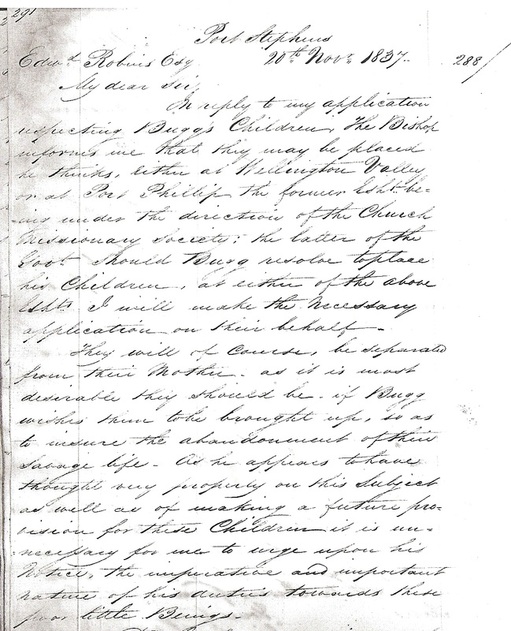 291
Port Stephens
Edwd. Robins Esq 20th Novr 1837. 288/
My dear Sir,
In reply to my application
respecting Bugg's Children, The Bishop
informs me that they may be placed
he thinks, either at Wellington Valley
or at Port Phillip, the former Esht. be-
ing under the direction of the Church
Missionary Society; the latter of the
Govt. Should Bugg resolve to place
his Children, at either of the above
Eshts I will make the Necessary
application on their behalf.
They will of Course, be separated
from their Mother. as it is most
desirable they should be. if Bugg
wishes them to be brought up, so as
to insure the abandonment of their
Savage life. As he appears to have
thought very properly on this Subject
as well as of making a future pro-
vision for these Children it is un-
necessary for me to urge upon his
Notice, the imperative and important
nature of his duties towards these
poor little Beings.